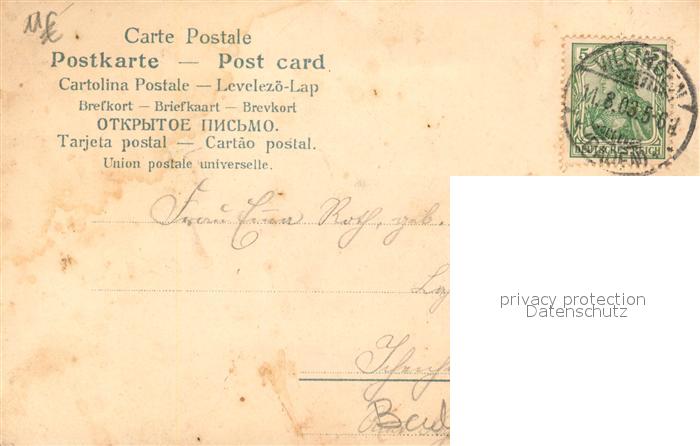 Carte Postale
Postkarte — Post card
Cartolina Postale — Levelezõ-Lap
Brefkort — Briefkaart — Brevkort
ОТКРЫТОЕ ПИСЬМО.
Tarjeta postal — Cartão postal.
Union postale universelle.
5
VILLINGEN
11.8.03.5-6N
DEUTSCHES REICH
Frau Emma Roth, geb.
privacy protection
Datenschutz